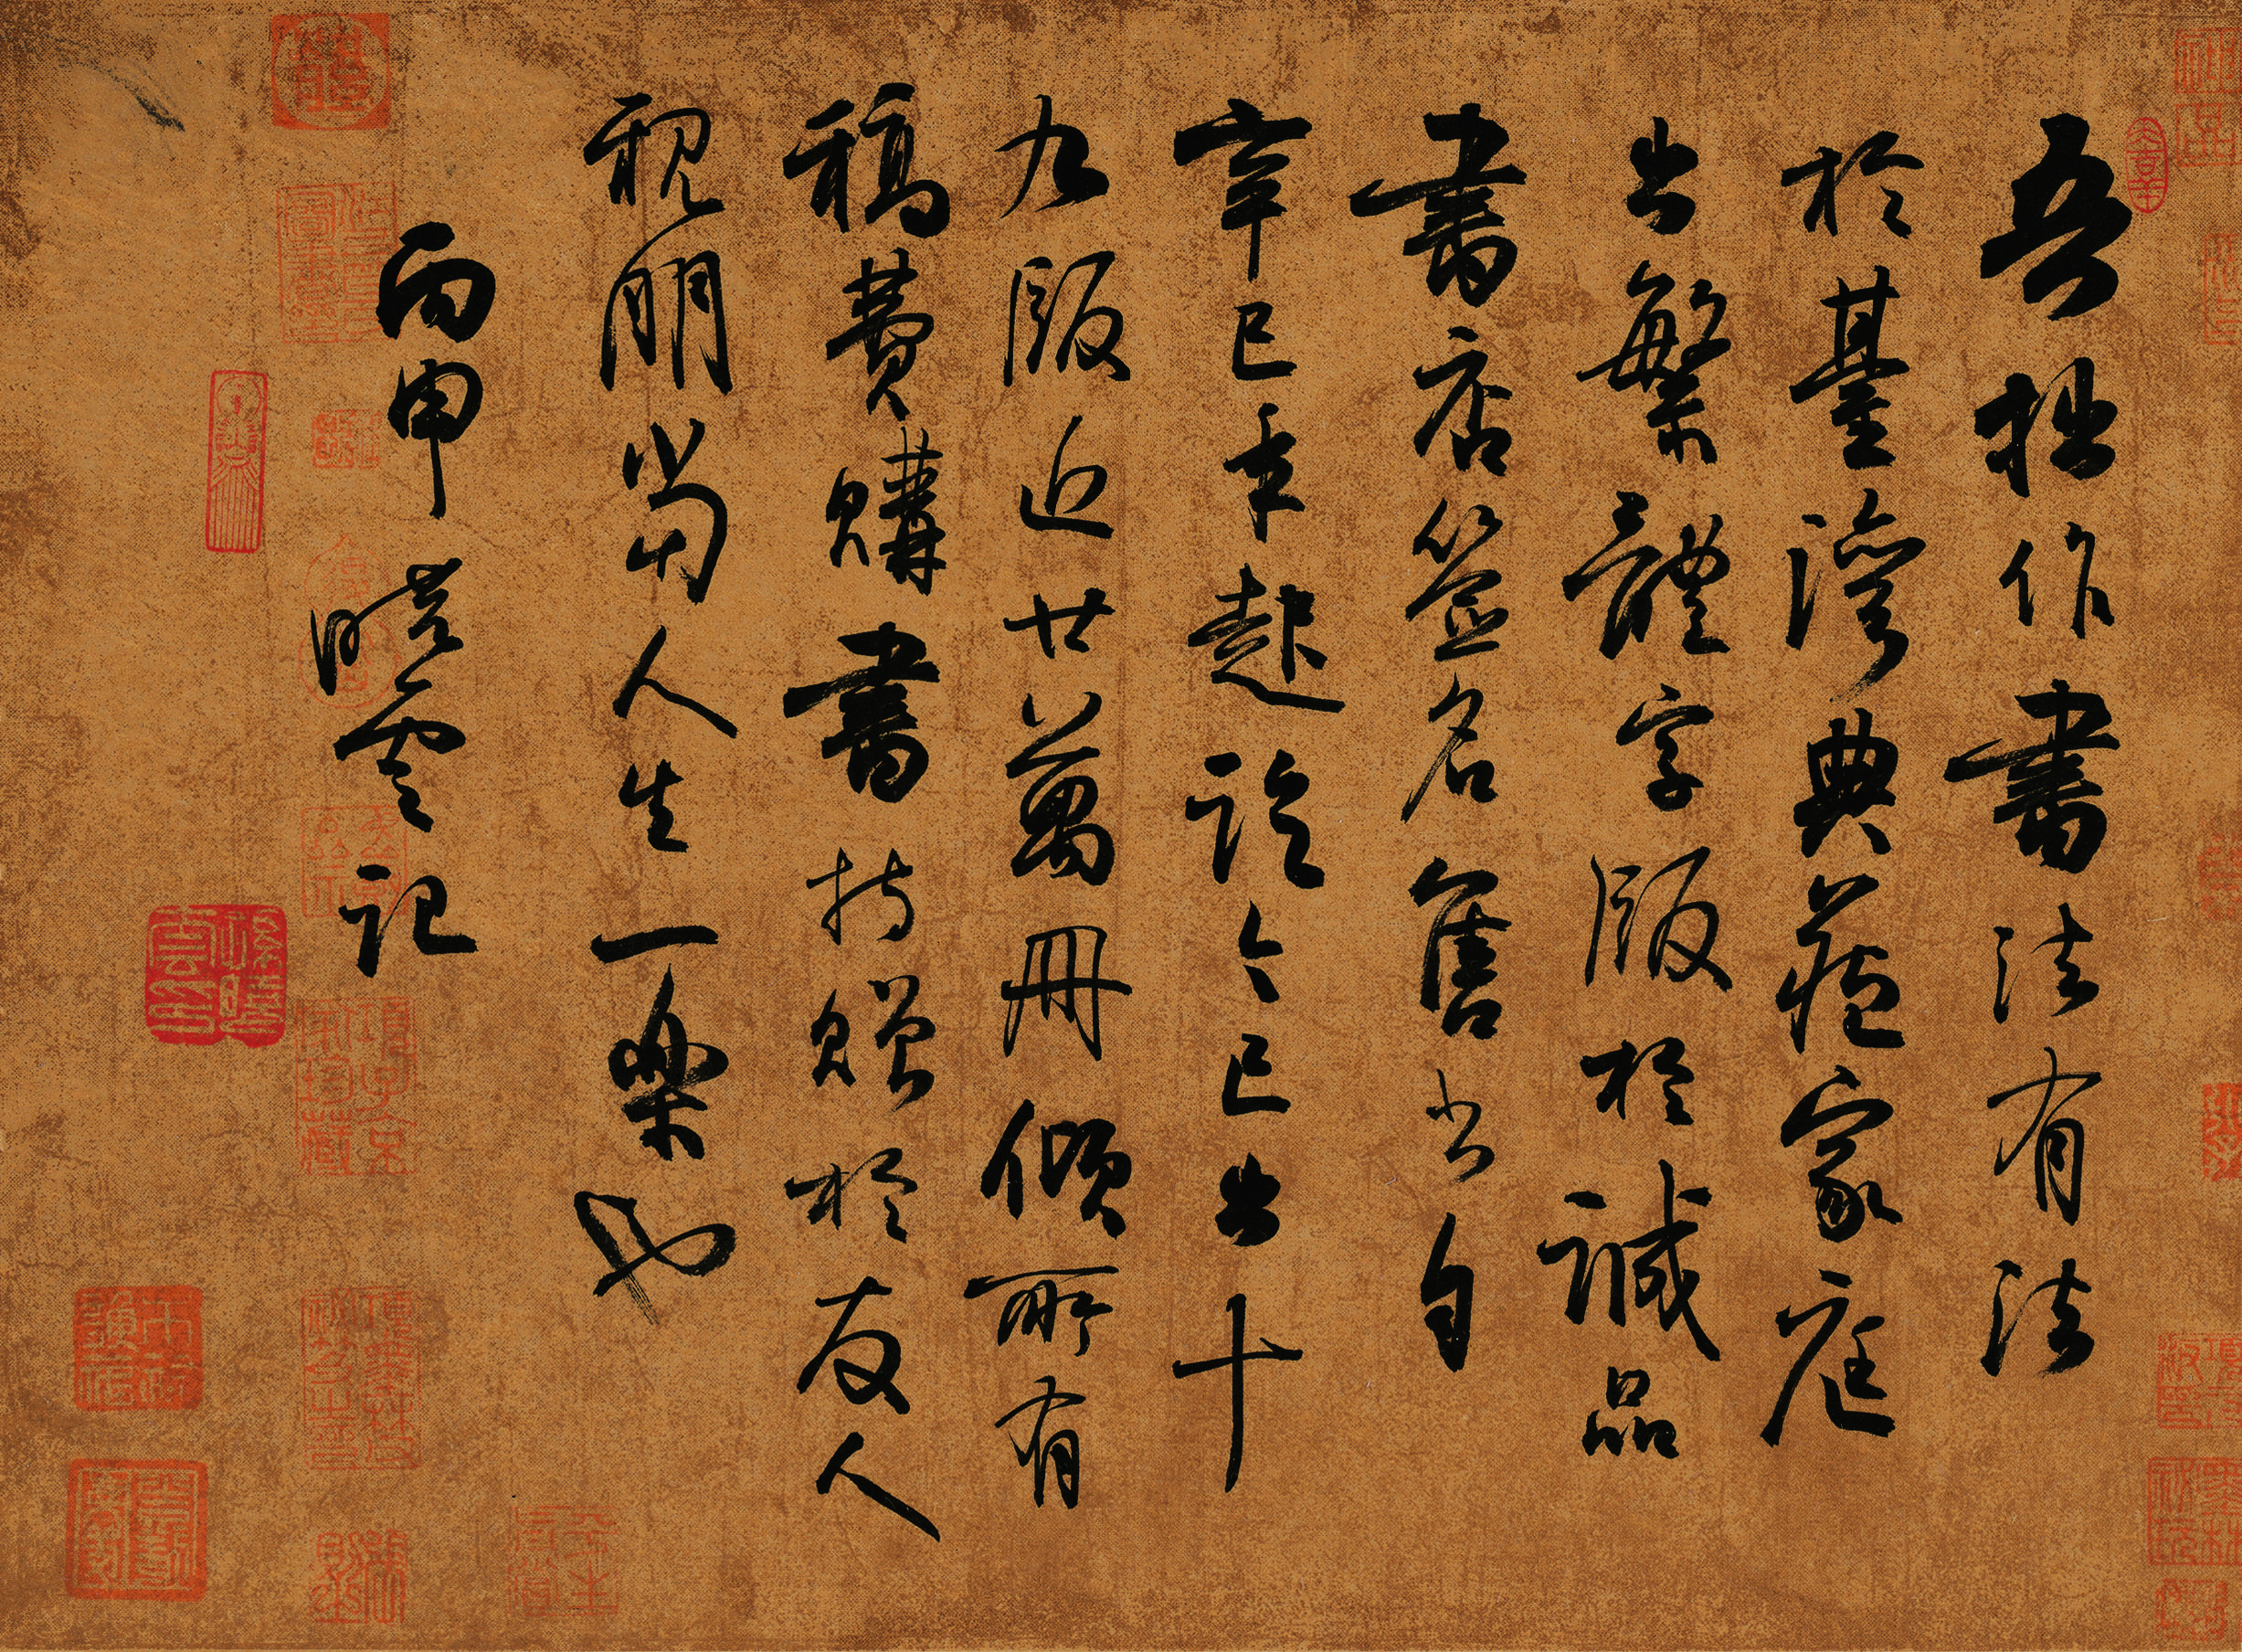 吾拙作書法有法
於臺灣典藏家庭
出繁體字版於誠品
書店簽名售書自
辛巳年起迄今已出十
九版近廿萬冊傾所有
稿費購書持贈於友人
親朋當人生一樂也
丙申 曉雲記